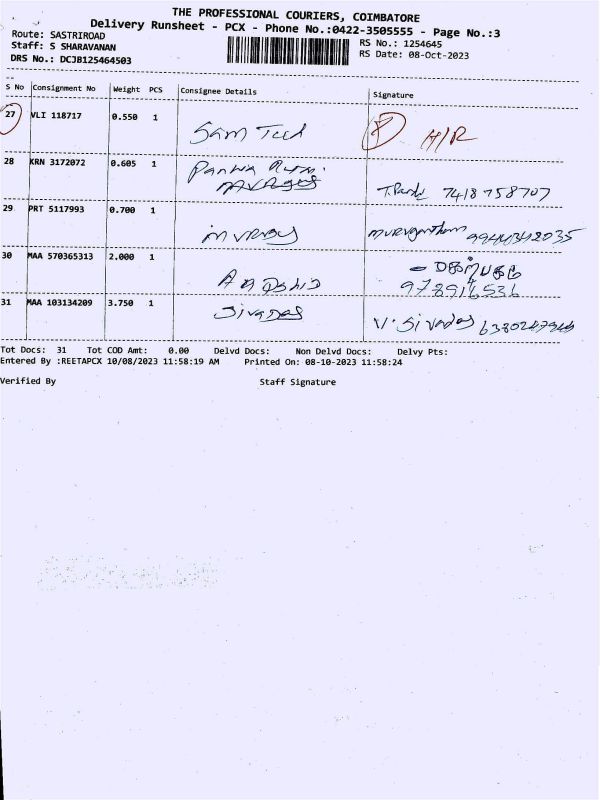 THE PROFESSIONAL COURIERS, COIMBATORE
Delivery Runsheet - PCX - Phone No.:0422-3505555 - Page No.:3
Route: SASTRIROAD
RS No.: 1254645
Staff: S SHARAVANAN
RS Date: 08-Oct-2023
DRS No.: DCJB125464503
S No Consignment No Weight PCS Consignee Details Signature
27 VLI 118717 0.550 1 Sam H/R
28 KRN 3172072 0.605 1 7418758707
29 PRT 5117993 0.700 1
30 MAA 570365313 2.000 1
31 MAA 103134209 3.750 1 Sivadas V. Sivadas
Tot Docs: 31 Tot COD Amt: 0.00 Delvd Docs: Non Delvd Docs: Delvy Pts:
Entered By :REETAPCX 10/08/2023 11:58:19 AM Printed On: 08-10-2023 11:58:24
Verified By Staff Signature